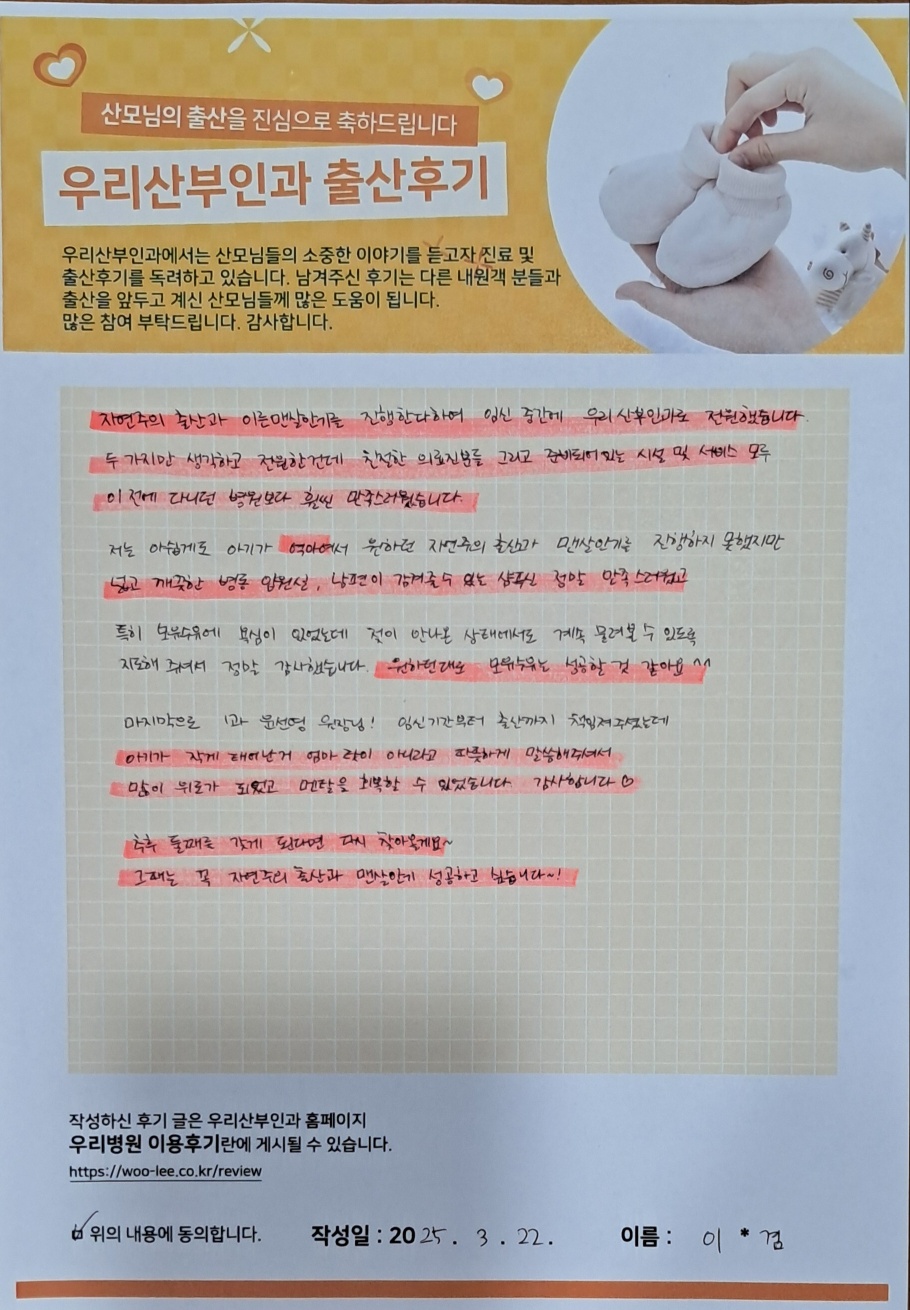 산모님의 출산을 진심으로 축하드립니다
우리산부인과 출산후기
우리산부인과에서는 산모님들의 소중한 이야기를 듣고자 진료 및
출산후기를 독려하고 있습니다. 남겨주신 후기는 다른 내원객 분들과
출산을 앞두고 계신 산모님들께 많은 도움이 됩니다.
많은 참여 부탁드립니다. 감사합니다.
자연주의 출산과 이른맨살안기를 진행한다하여 임신 중간에 우리산부인과로 전원했습니다.
두 가지만 생각하고 전원한건데 친절한 의료진분들 그리고 준비되어있는 시설 및 서비스 모두
이전에 다니던 병원보다 훨씬 만족스러웠습니다.
저는 아쉽게도 아기가 역아여서 원하던 자연주의 출산과 맨살안기를 진행하지 못했지만
넓고 깨끗한 병동 입원실, 남편이 감겨줄수 있는 샴푸실 정말 만족스러웠고
특히 모유수유에 욕심이 있었는데 젖이 안나온 상태에서도 계속 물려볼 수 있도록
지도해 주셔서 정말 감사했습니다. 원하던대로 모유수유는 성공할 것 같아요 ^^
마지막으로 1과 문선영 원장님! 임신기간부터 출산까지 책임져주셨는데
아기가 작게 태어난거 엄마 탓이 아니라고 따뜻하게 말씀해주셔서
많이 위로가 되었고 멘탈을 회복할 수 있었습니다 감사합니다♡
추후 둘째를 갖게 된다면 다시 찾아올게요~
그때는 꼭 자연주의 출산과 맨살안기 성공하고 싶습니다~!
작성하신 후기 글은 우리산부인과 홈페이지
우리병원 이용후기란에 게시될 수 있습니다.
https://woo-lee.co.kr/review
위의 내용에 동의합니다. 작성일 : 2025. 3. 22. 이름 : 이 * 겸